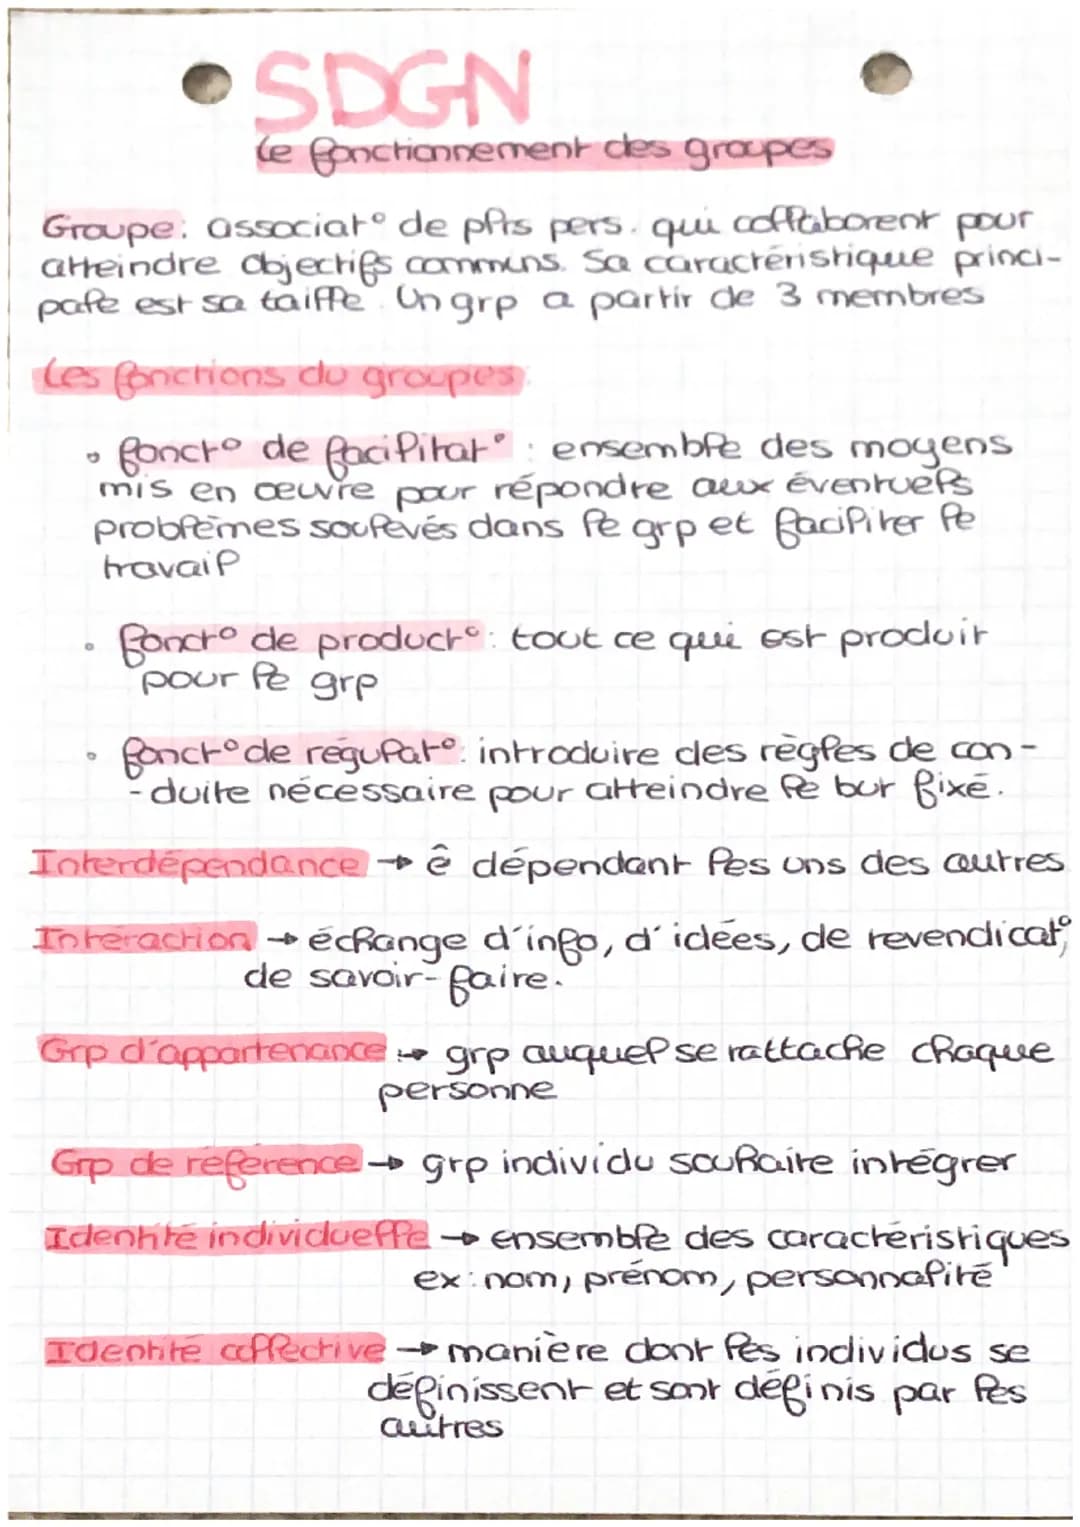 SDGN
Le fonctionnement des groupes
Groupe: associat° de plrs pers. qui collaborent pour
atteindre objectifs communs. Sa caractéristique princi-
pale est sa taille. Un grp a partir de 3 membres
Les fonctions du groupes:
• fonct° de facilitat° : ensemble des moyens
mis en œuvre pour répondre aux éventuels
problèmes soulevés dans le grp et faciliter le
travail
• fonct° de product°: tout ce qui est produit
pour le grp
• fonct° de régulat°: introduire des règles de con-
-duite nécessaire pour atteindre le but fixé.
Interdépendance → ê dépendant les uns des autres
Interaction → échange d'info, d'idées, de revendicat°,
de savoir-faire.
Grp d'appartenance :→ grp auquel se rattache chaque
personne
Grp de référence → grp individu souhaite intégrer
Identité individuelle → ensemble des caractéristiques
ex: nom, prénom, personnalité
Identité collective → manière dont les individus se
définissent et sont définis par les
autres